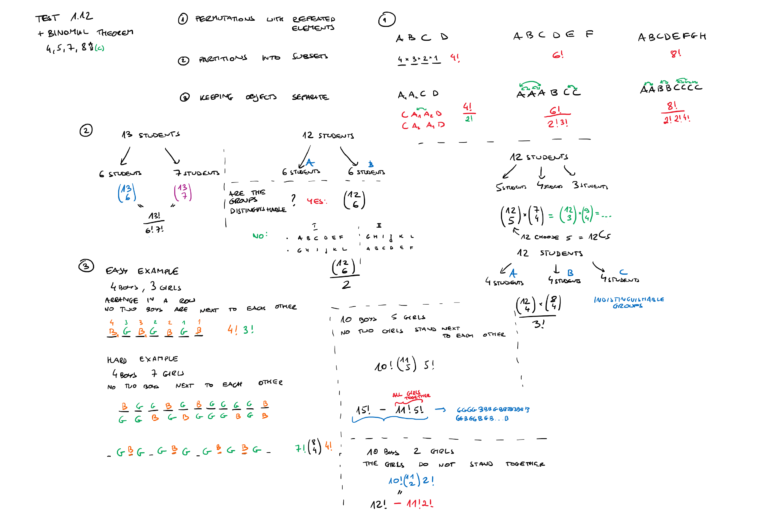 TEST 1.12
+ BINOMIAL THEOREM
4, 5, 7, 8 (c)
① PERMUTATIONS WITH REPEATED ELEMENTS
② PARTITIONS INTO SUBSETS
③ KEEPING OBJECTS SEPARATE
①
A B C D
4 × 3 × 2 × 1 4!
A B C D E F
6!
A B C D E F G H
8!
A₁A₂C D
C A₁ A₂ D
C A₂ A₁ D
4!
2!
A A A B C C
6!
2! 3!
A A B B C C C C
8!
2! 2! 4!
②
13 STUDENTS
6 STUDENTS 7 STUDENTS
(13 6) = (13 7)
13!
6! 7!
12 STUDENTS
A B
6 STUDENTS 6 STUDENTS
ARE THE GROUPS DISTINGUISHABLE ?
YES: (12 6)
NO:
I II
A B C D E F G H I J K L
G H I J K L A B C D E F
(12 6)
2
12 STUDENTS
5 STUDENTS 4 STUDENTS 3 STUDENTS
(12 5) × (7 4) = (12 3) × (9 4) = ...
12 CHOOSE 5 = 12C5
12 STUDENTS
A B C
4 STUDENTS 4 STUDENTS 4 STUDENTS
(12 4) × (8 4)
3!
INDISTINGUISHABLE GROUPS
③
EASY EXAMPLE
4 BOYS, 3 GIRLS
ARRANGE IN A ROW
NO TWO BOYS ARE NEXT TO EACH OTHER
4 3 3 2 2 1 1
B G B G B G B 4! 3!
HARD EXAMPLE
4 BOYS 7 GIRLS
NO TWO BOYS NEXT TO EACH OTHER
B G G B G B G G G G B
G G B G B G G G B G B
_ G B G _ G B G _ G B G B G _ 7! (8 4) 4!
10 BOYS 5 GIRLS
NO TWO GIRLS STAND NEXT TO EACH OTHER
10! (11 5) 5!
ALL GIRLS TOGETHER
15! - 11! 5!
10 BOYS 2 GIRLS
THE GIRLS DO NOT STAND TOGETHER
10! (11 2) 2!
=
12! - 11! 2!